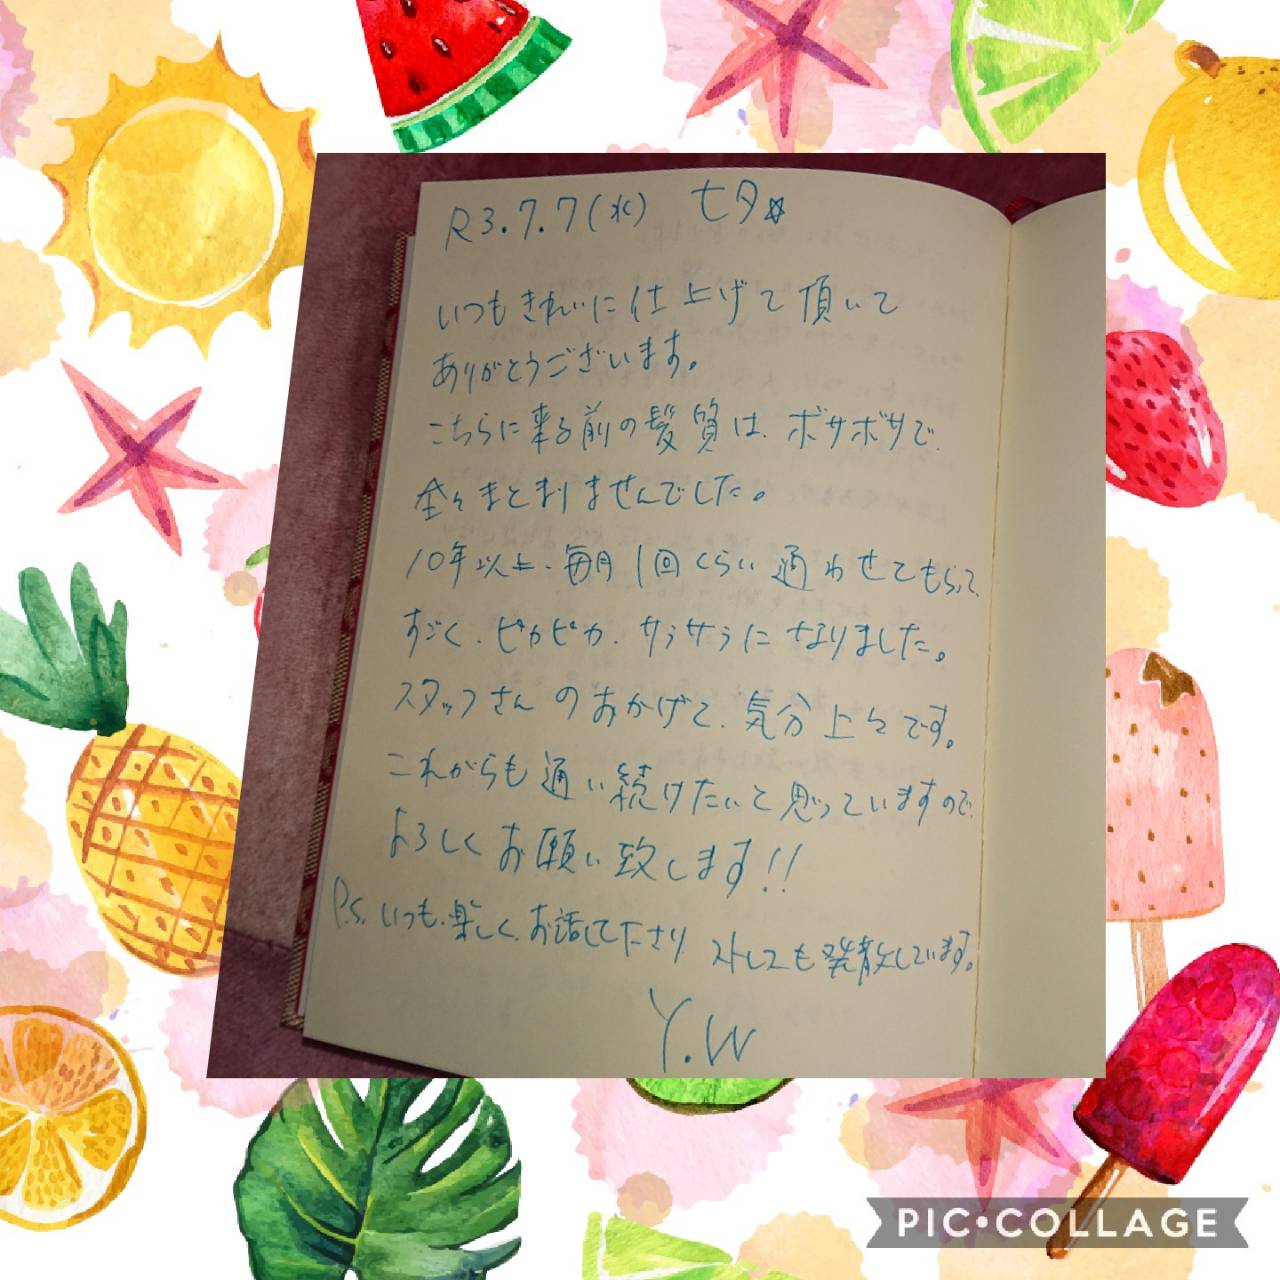 R3.7.7(水) 七夕☆
いつもきれいに仕上げて頂いて
ありがとうございます。
こちらに来る前の髪質は、ボサボサで、
全々まとまりませんでした。
10年以上、毎月1回くらい通わせてもらって、
すごく、ピカピカ、サラサラになりました。
スタッフさんのおかげで、気分上々です。
これからも通い続けたいと思っていますので、
よろしくお願い致します!!
P.S. いつも、楽しく、お話して下さり ストレスも発散しています。
Y.W
PIC•COLLAGE